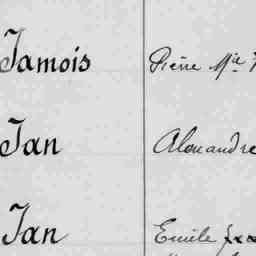 Jamois Pierre Mie
Jan Alexandre
Jan Emile